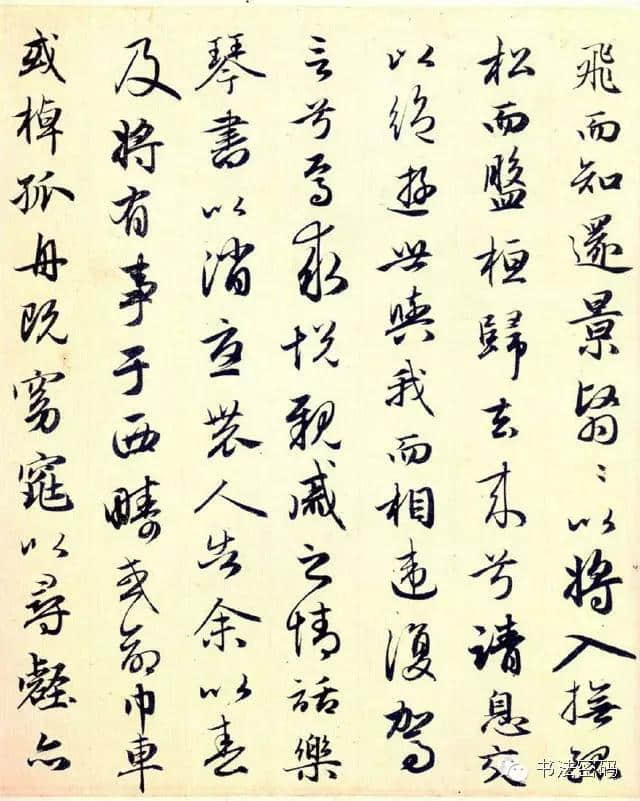 飛而知還景翳〻以將入撫孤
松而盤桓歸去来兮請息交
以絶遊世與我而相違復駕
言兮焉求悦親戚之情話樂
琴書以消憂農人告余以春
及將有事于西疇或命巾車
或棹孤舟既窈窕以尋壑亦
书法密码